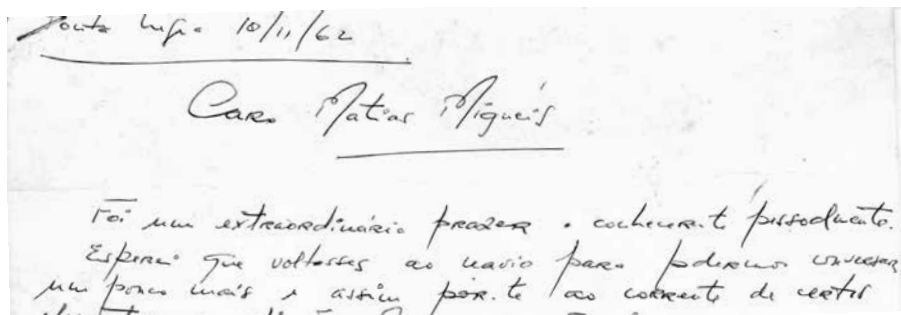 Ponta Negra 10/11/62
Caro Matias Miguéis
Foi um extraordinário prazer o conhecer-te pessoalmente.
Esperei que voltasses ao navio para podermos conversar
um pouco mais e assim pôr-te ao corrente de certos